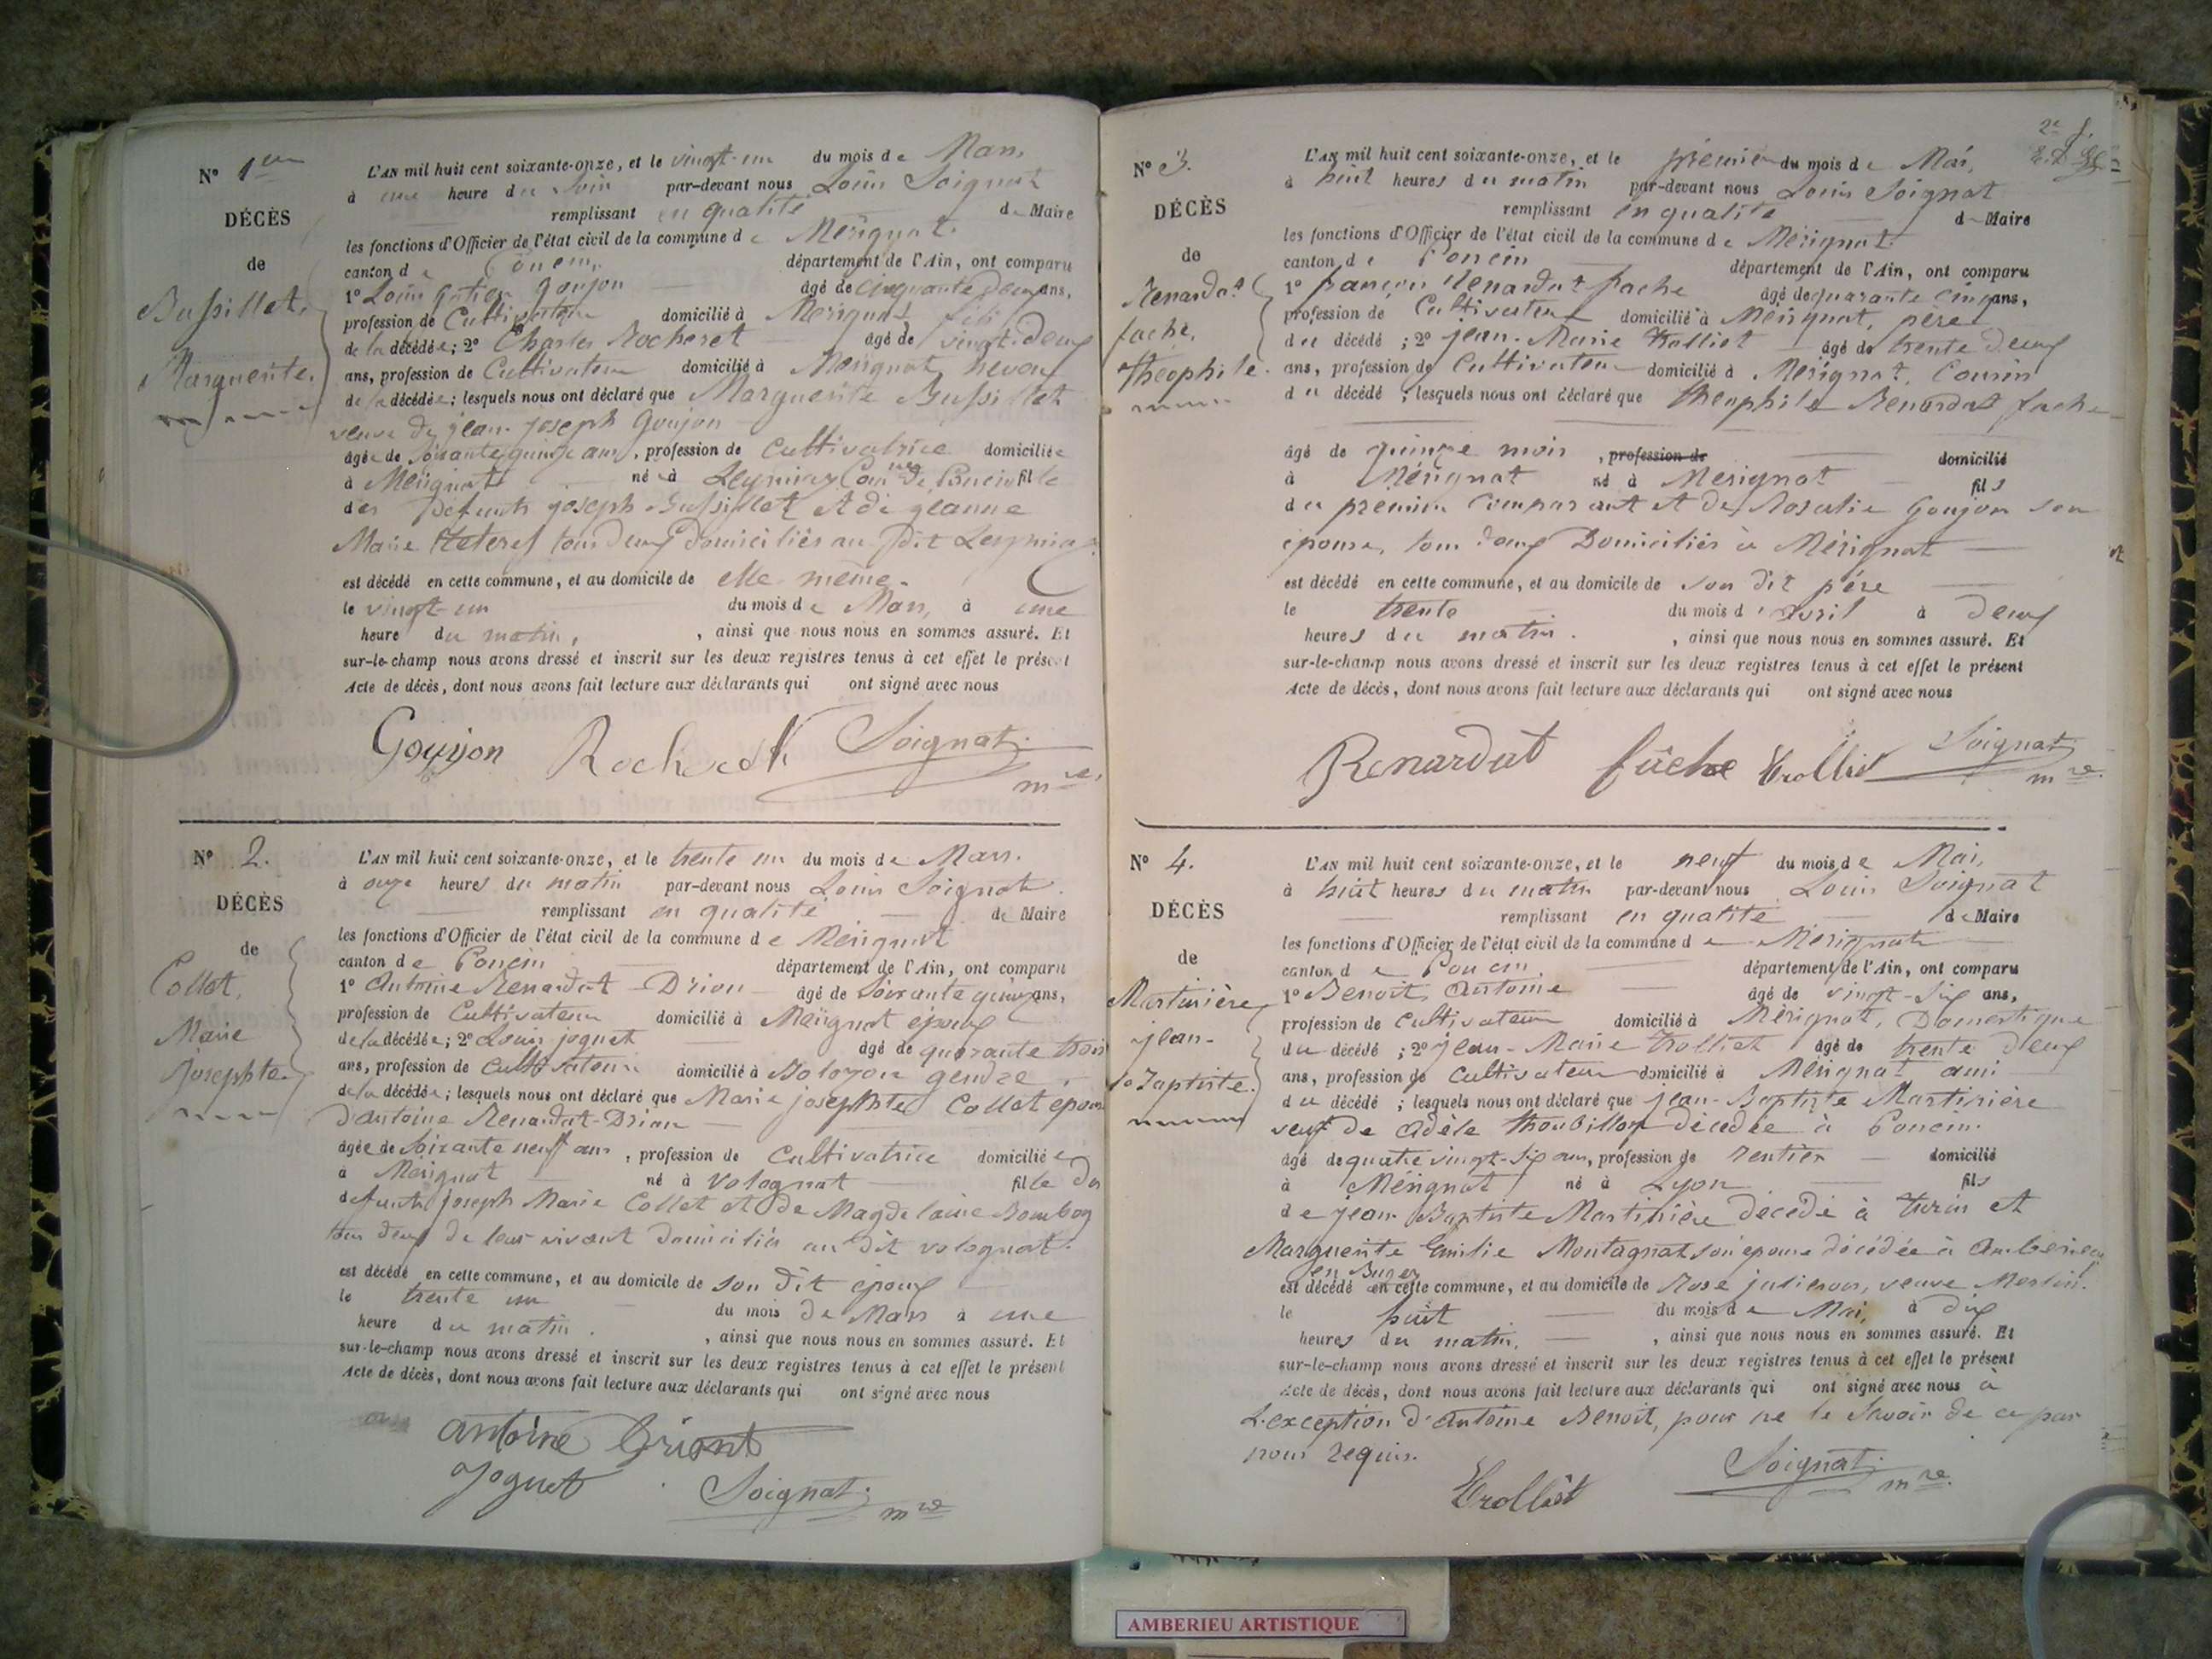 N° 1er
DÉCÈS
de
Bussillet,
Marguerite.
L'AN mil huit cent soixante-onze, et le vingt-un du mois de Mars,
à une heure du soir par-devant nous Louis Soignat
remplissant en qualité de Maire
les fonctions d'Officier de l'état civil de la commune de Mérignat.
canton de Poncin, département de l'Ain, ont comparu
1° Louis Goujon âgé de cinquante deux ans,
profession de Cultivateur domicilié à Mérignat, fils
de la décédée; 2° Charles Rocheret âgé de vingt-deux
ans, profession de Cultivateur domicilié à Mérignat, neveu
de la décédée; lesquels nous ont déclaré que Marguerite Bussillet
veuve de jean-joseph Goujon
âgée de soixante quinze ans, profession de Cultivatrice domiciliée
à Mérignat née à Leymiaz Com.ne de Poncin fille
des défunts joseph Bussillet et de jeanne
Marie tous deux domiciliés au dit Leymiaz.
est décédé en cette commune, et au domicile de elle-même.
le vingt-un du mois de Mars, à une
heure du matin, , ainsi que nous nous en sommes assuré. Et
sur-le-champ nous avons dressé et inscrit sur les deux registres tenus à cet effet le présent
Acte de décès, dont nous avons fait lecture aux déclarants qui ont signé avec nous
Goujon Rocheret Soignat
mre
N° 2.
DÉCÈS
de
Collet,
Marie
Josephte.
L'AN mil huit cent soixante-onze, et le trente un du mois de Mars.
à onze heures du matin par-devant nous Louis Soignat.
remplissant en qualité de Maire
les fonctions d'Officier de l'état civil de la commune de Mérignat
canton de Poncin département de l'Ain, ont comparu
1° Antoine Renardat-Drion âgé de soixante quinze ans,
profession de Cultivateur domicilié à Mérignat époux
de la décédée; 2° Louis joguet âgé de quarante trois
ans, profession de Cultivateur domicilié à Bolozon gendre,
de la décédée; lesquels nous ont déclaré que Marie josephte Collet épouse
d'antoine Renardat-Drion
âgée de soixante neuf ans, profession de Cultivatrice domiciliée
à Mérignat né à Volognat fille des
défunts joseph Marie Collet et de Magdelaine Bombog
tous deux de leur vivant domiciliés au dit volognat.
est décédé en cette commune, et au domicile de son dit époux
le trente un du mois de Mars à une
heure du matin. , ainsi que nous nous en sommes assuré. Et
sur-le-champ nous avons dressé et inscrit sur les deux registres tenus à cet effet le présent
Acte de décès, dont nous avons fait lecture aux déclarants qui ont signé avec nous
antoine Briont
Joguet Soignat
mre
2e f.
N° 3.
DÉCÈS
de
Renardat
fache,
Théophile.
L'AN mil huit cent soixante-onze, et le premier du mois de Mai,
à huit heures du matin par-devant nous Louis Soignat
remplissant en qualité de Maire
les fonctions d'Officier de l'état civil de la commune de Mérignat.
canton de Poncin département de l'Ain, ont comparu
1° françois Renardat fache âgé de quarante cinq ans,
profession de Cultivateur domicilié à Mérignat, père
du décédé; 2° jean-Marie trolliet âgé de trente deux
ans, profession de Cultivateur domicilié à Mérignat, Cousin
du décédé; lesquels nous ont déclaré que théophile Renardat fache
âgé de quinze mois, profession de domicilié
à Mérignat né à Mérignat fils
du premier Comparant et de Rosalie Goujon son
épouse, tous deux Domiciliés à Mérignat
est décédé en cette commune, et au domicile de son dit père
le trente du mois d'avril à deux
heures du matin. , ainsi que nous nous en sommes assuré. Et
sur-le-champ nous avons dressé et inscrit sur les deux registres tenus à cet effet le présent
Acte de décès, dont nous avons fait lecture aux déclarants qui ont signé avec nous
Renardat fâche trolliet Soignat
mre.
N° 4.
DÉCÈS
de
Martinière,
jean-
Baptiste.
L'AN mil huit cent soixante-onze, et le neuf du mois de Mai,
à huit heures du matin par-devant nous Louis Soignat
remplissant en qualité de Maire
les fonctions d'Officier de l'état civil de la commune de Mérignat
canton de Poncin département de l'Ain, ont comparu
1° Benoit, Antoine âgé de vingt-six ans,
profession de Cultivateur domicilié à Mérignat, Domestique
du décédé; 2° jean-Marie trolliet âgé de trente deux
ans, profession de Cultivateur domicilié à Mérignat ami
du décédé; lesquels nous ont déclaré que jean-Baptiste Martinière
veuf de Adèle troubillon décédée à Poncin.
âgé de quatre vingt-six ans, profession de rentier domicilié
à Mérignat né à Lyon fils
de jean-Baptiste Martinière décédé à turin et
Marguerite Emilie Montagnat son épouse décédée à Ambérieu
en Bugey
est décédé en cette commune, et au domicile de Rose julienon, veuve Merlin.
le huit du mois de Mai, à dix
heures du matin, , ainsi que nous nous en sommes assuré. Et
sur-le-champ nous avons dressé et inscrit sur les deux registres tenus à cet effet le présent
Acte de décès, dont nous avons fait lecture aux déclarants qui ont signé avec nous à
L'exception d'Antoine Benoit, pour ne le savoir de ce par
nous requis.
trolliet Soignat
mre.
AMBERIEU ARTISTIQUE